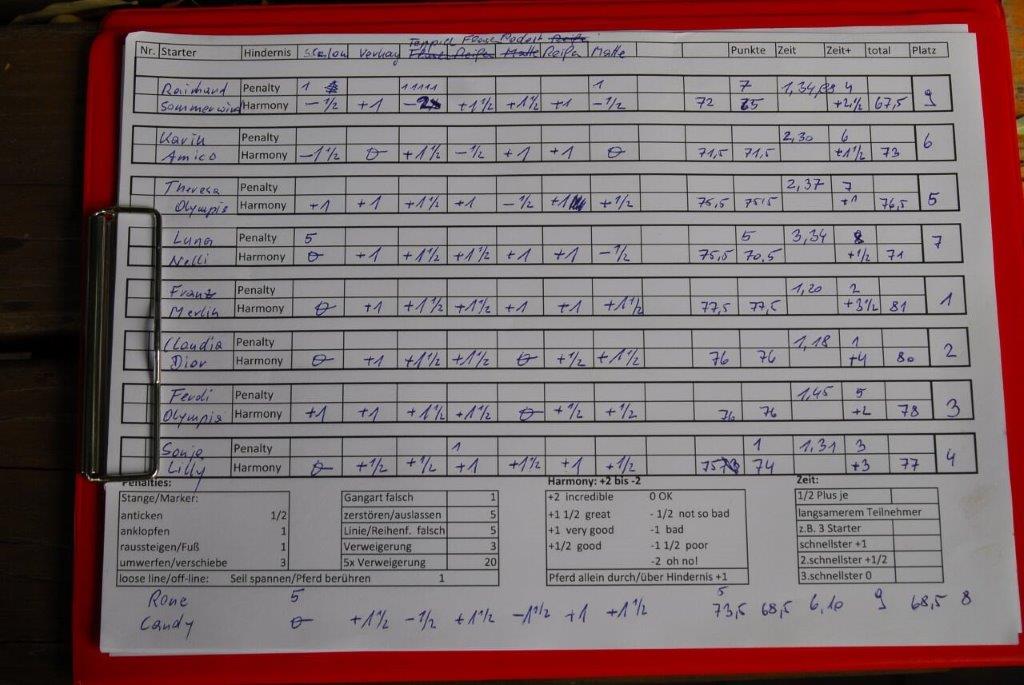 Teppich Flasse Podest Reifen
Nr. Starter Hindernis Slalom Vorhang Reifen Matte Reifen Matte Punkte Zeit Zeit+ total Platz
Reinhard Penalty 1 11111 1 7 1,34 4
Sommerwind Harmony -1/2 +1 +1 1/2 +1 1/2 +1 -1/2 72 65 +2 1/2 67,5 9
Karin Penalty 2,30 6
Amico Harmony -1 1/2 0 +1 1/2 -1/2 +1 +1 0 71,5 71,5 +1 1/2 73 6
Theresa Penalty 2,37 7
Olympia Harmony +1 +1 +1 1/2 +1 -1/2 +1 +1/2 75,5 75,5 +1 76,5 5
Luna Penalty 5 5 3,34 8
Nelli Harmony 0 +1 +1 1/2 +1 1/2 +1 +1 -1/2 75,5 70,5 +1/2 71 7
Franz Penalty 1,20 2
Merlin Harmony 0 +1 +1 1/2 +1 1/2 +1 +1 +1 1/2 77,5 77,5 +3 1/2 81 1
Claudia Penalty 1,18 1
Dior Harmony 0 +1 +1 1/2 +1 1/2 0 +1/2 +1 1/2 76 76 +4 80 2
Ferdi Penalty 1,45 5
Olympia Harmony +1 +1 +1 1/2 +1 1/2 0 +1/2 +1/2 76 76 +2 78 3
Sonja Penalty 1 1 1,31 3
Lilly Harmony 0 +1/2 +1/2 +1 +1 1/2 +1 +1/2 75 74 +3 77 4
Penalties: Harmony: +2 bis -2 Zeit:
Stange/Marker: Gangart falsch 1 +2 incredible 0 OK 1/2 Plus je
anticken 1/2 zerstören/auslassen 5 +1 1/2 great - 1/2 not so bad langsamerem Teilnehmer
anklopfen 1 Linie/Reihenf. falsch 5 +1 very good -1 bad z.B. 3 Starter
raussteigen/Fuß 1 Verweigerung 3 +1/2 good -1 1/2 poor schnellster +1
umwerfen/verschiebe 3 5x Verweigerung 20 -2 oh no! 2.schnellster +1/2
loose line/off-line: Seil spannen/Pferd berühren 1 Pferd allein durch/über Hindernis +1 3.schnellster 0
Rone 5 5
Candy 0 +1 1/2 -1/2 +1 1/2 -1 1/2 +1 +1 1/2 73,5 68,5 6,10 9 68,5 8